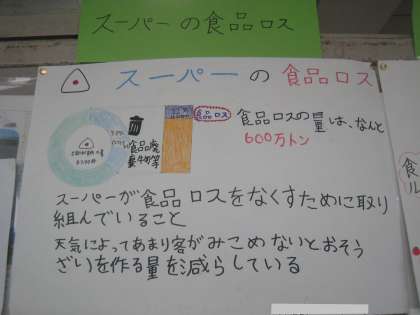 スーパーの食品ロス
スーパーの食品ロス
食品ロス
食品ロスの量は、なんと
600万トン
食品廃
棄物等
スーパーが食品ロスをなくすために取り
組んでいること
天気によってあまり客がみこめないとおそう
ざいを作る量を減らしている